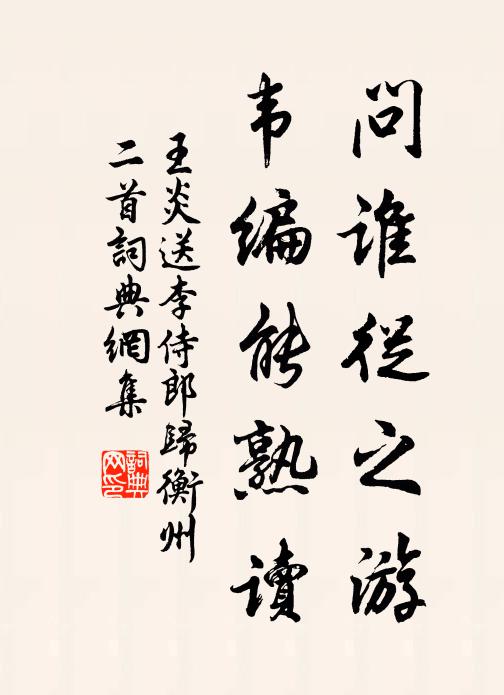 问谁從之游
韦编能熟读
王炎送李侍郎歸衡州
二首詞典網集
詞典
网印